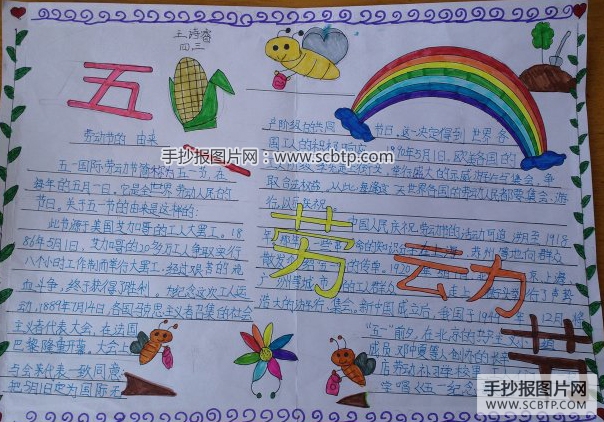 五
王诗睿
四、三
劳动节的 由来
五一国际劳动节简称为五一节,在
每年的五月一日。它是全世界劳动人民的
节日。关于五一节的由来是这样的:
此节源于美国芝加哥的工人大罢工。18
86年5月1日,芝加哥的20多万工人争取实行
八个小时工作制而举行大罢工,经过艰苦的流
血斗争,终于获得了胜利。为纪念这次工人运
动,1889年7月14日,各国马克思主义者召集的社会
主义者代表大会,在法国
巴黎隆重开幕。大会上
与会代表一致同意
把5月1日定为国际无
产阶级的共同 节日。这一决定得到 世界各
国工人的积极响应。1890年5月1日,欧美各国的
举行盛大的示威游行与集会,争
取合法权益。从此每逢这天世界各国的劳动人民都要集会、游
行,以示庆祝。
中国人民庆祝劳动节的活动可追溯至1918
年
苏州 等地向群众
散发
的传单。1920
广州
走上街头举行了声势
浩大的游行、集会。新中国成立后,我国于1949年12月将
“五一”前夕,在北京的
成员邓中夏等人创办的长辛
店劳动补习学校
学唱《五一纪念
劳动节
手抄报图片网:www.scbtp.com
手抄报图片网:www.scbtp.com
手抄报图片网
WWW.SCBTP.COM